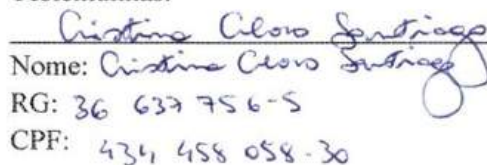 Testemunhas:
Cristina Cloro Santiago
Nome: Cristina Cloro Santiago
RG: 36 637 756-5
CPF: 434 458 058-30